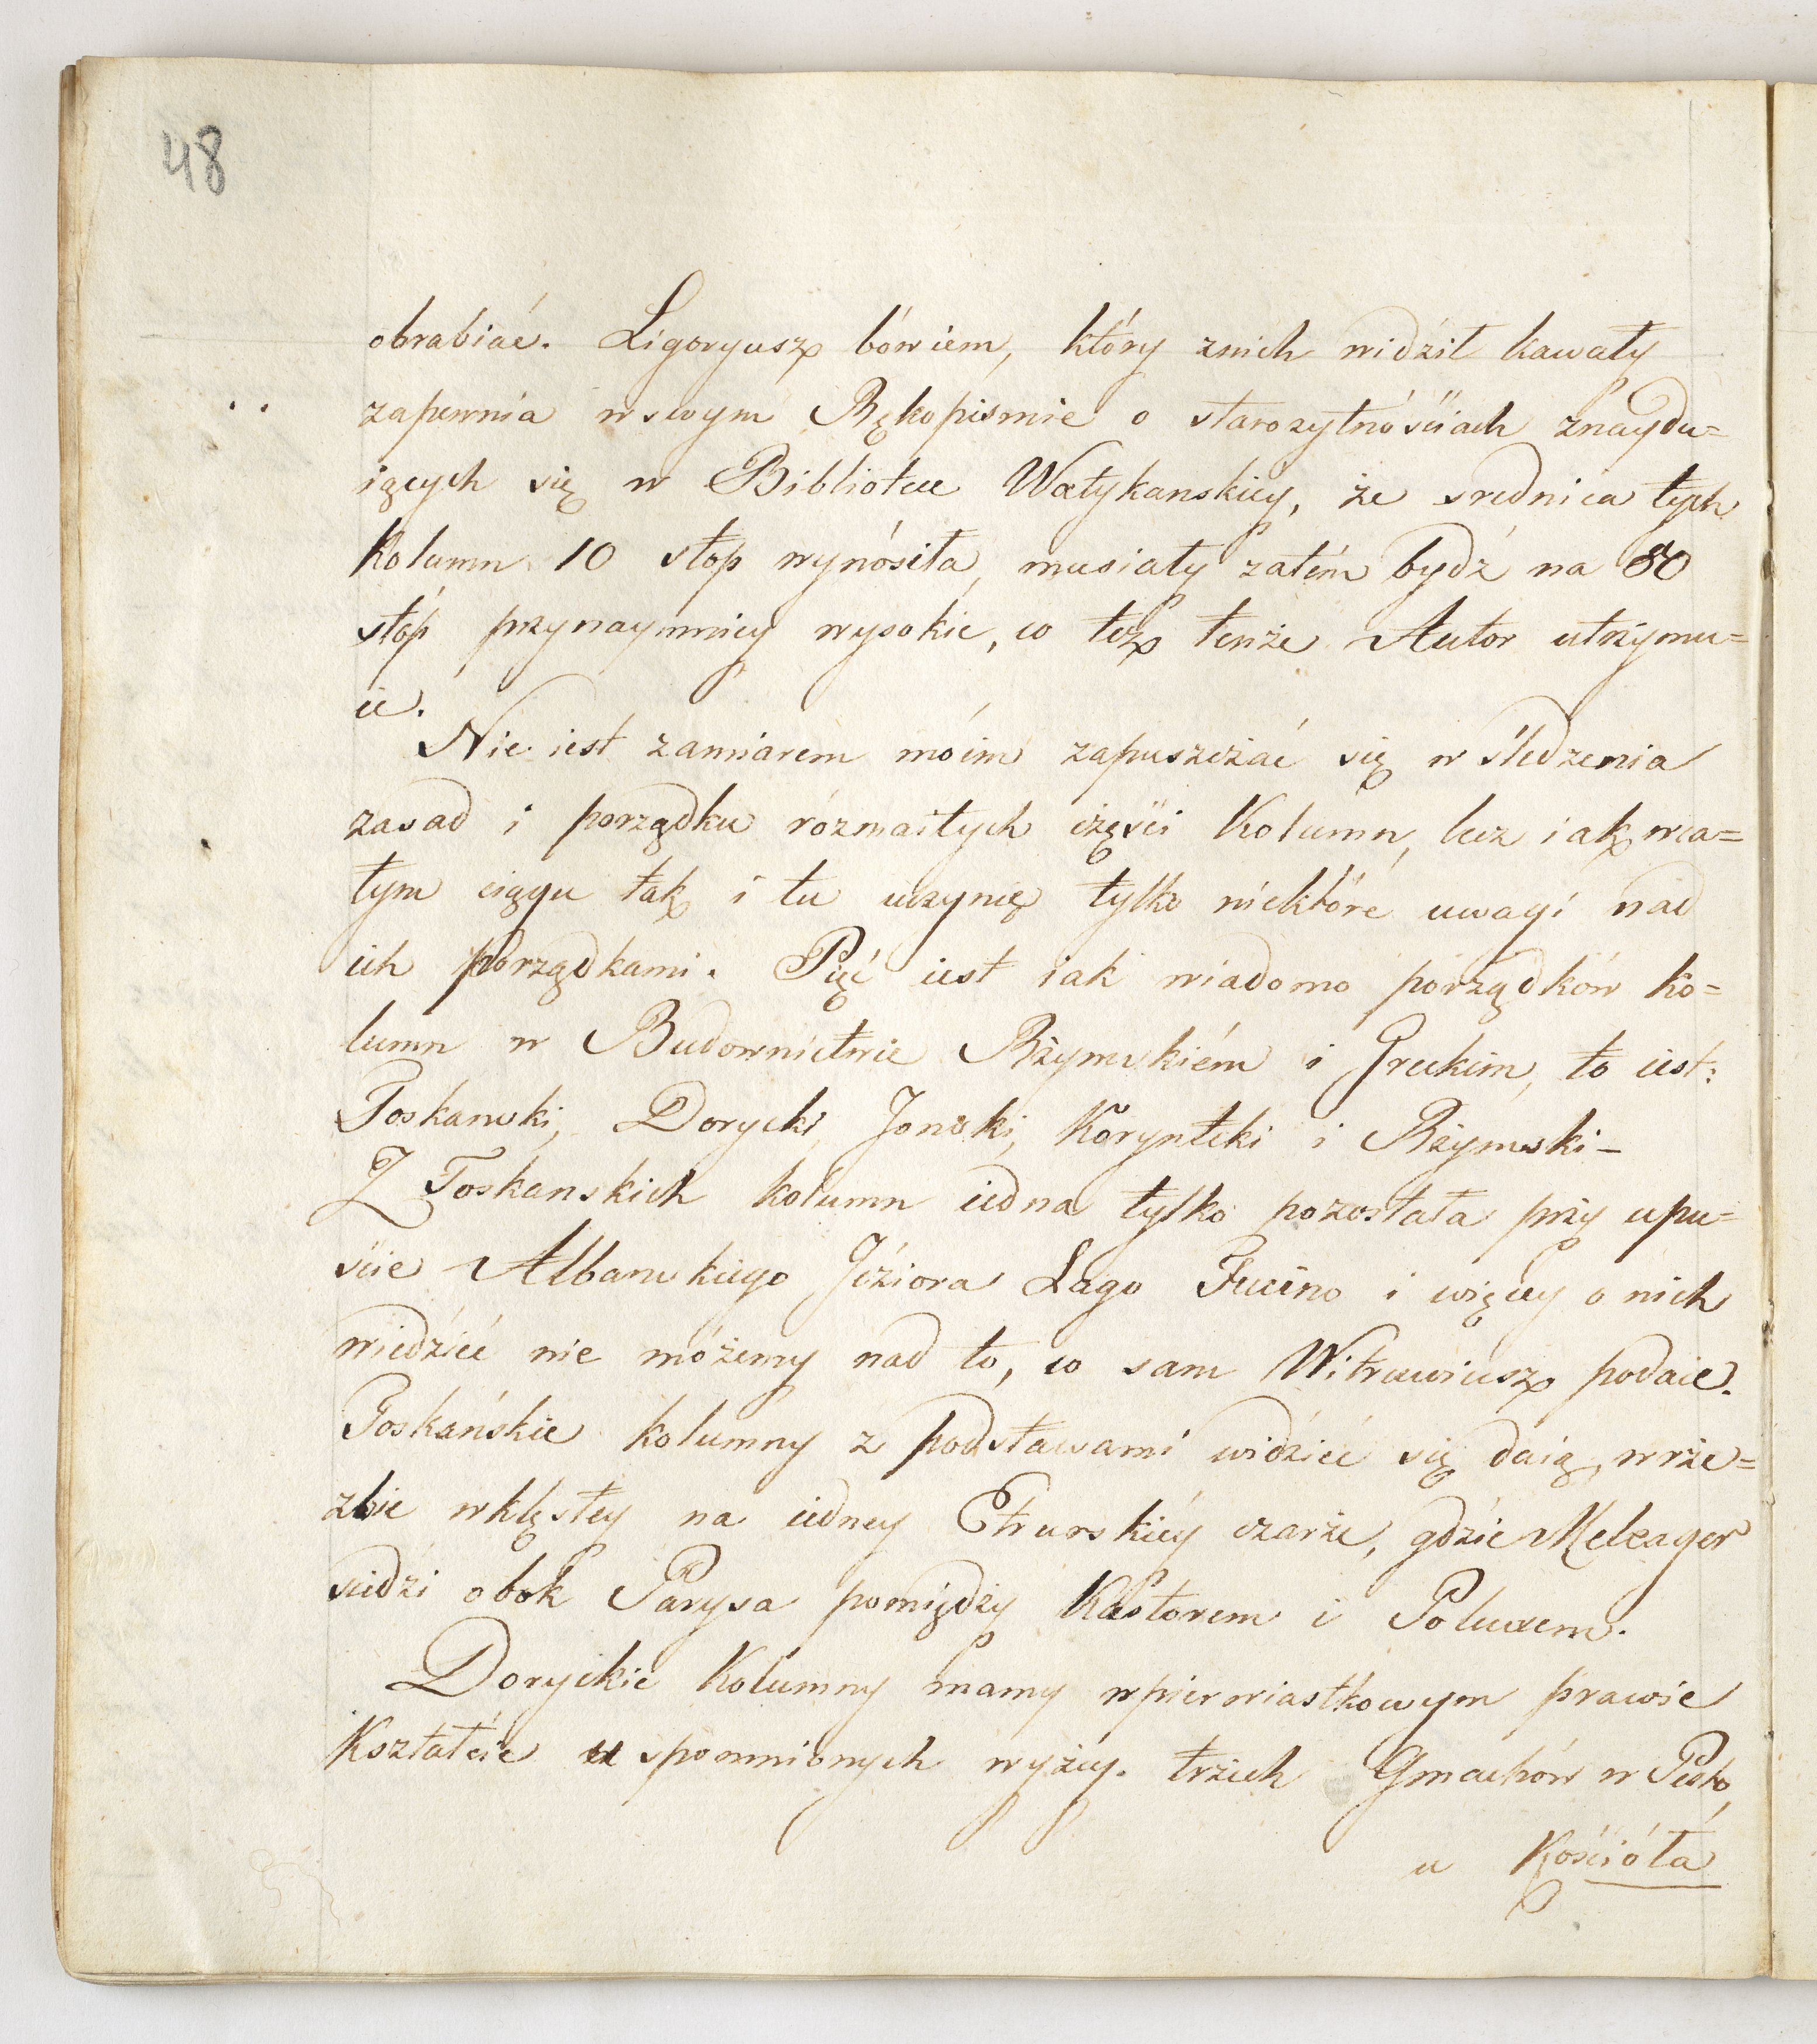 48
obrabiać. Ligoryusz bowiem, który znich widził kawały
zapewnia wswym Rękopismie o starozytnościach znaydu=
iących się w Bibliotece Watykanskiey, że srednica tych
Kolumn 10 stop wynósiła, musiały zatém bydź na 80
stóp przynaymniey wysokie, co też tenże Autor utrzymu=
ie.
Nie iest zamiarem móim zapuszczać się w śledzenia
zasad i porządku rózmaitych części Kolumn, lecz iak wca=
łym ciągu tak i tu uczynię tylko niektóre uwagi nad
ich porządkami. Pięć iest iak wiadomo porządków ko=
lumn w Budownictwie Rzymskiém i Greckim, to iest:
Toskanski, Dorycki, Jonski, Koryntcki i Rzymski –
Z Toskanskich kolumn iedna tylko pozostała przy upu=
ście Albanskiego Jéziora Lago Fucino i więcey o nich
wiedziéć nie móżemy nad to, co sam Witruwiusz podaie.
Toskańskie kolumny z podstawami widziéć się daią, wrze=
zbie wklęsłey na iedney Etrurskiéy czarze, gdzie Meleager
siedzi obok Parysa pomiędzy Kastorem i Poluxem.
Doryckie Kolumny mamy wpierwiastkowym prawie
Kształcie uspomnionych wyżéy. trzech Gmachów w Pesto,
u Kośćióła